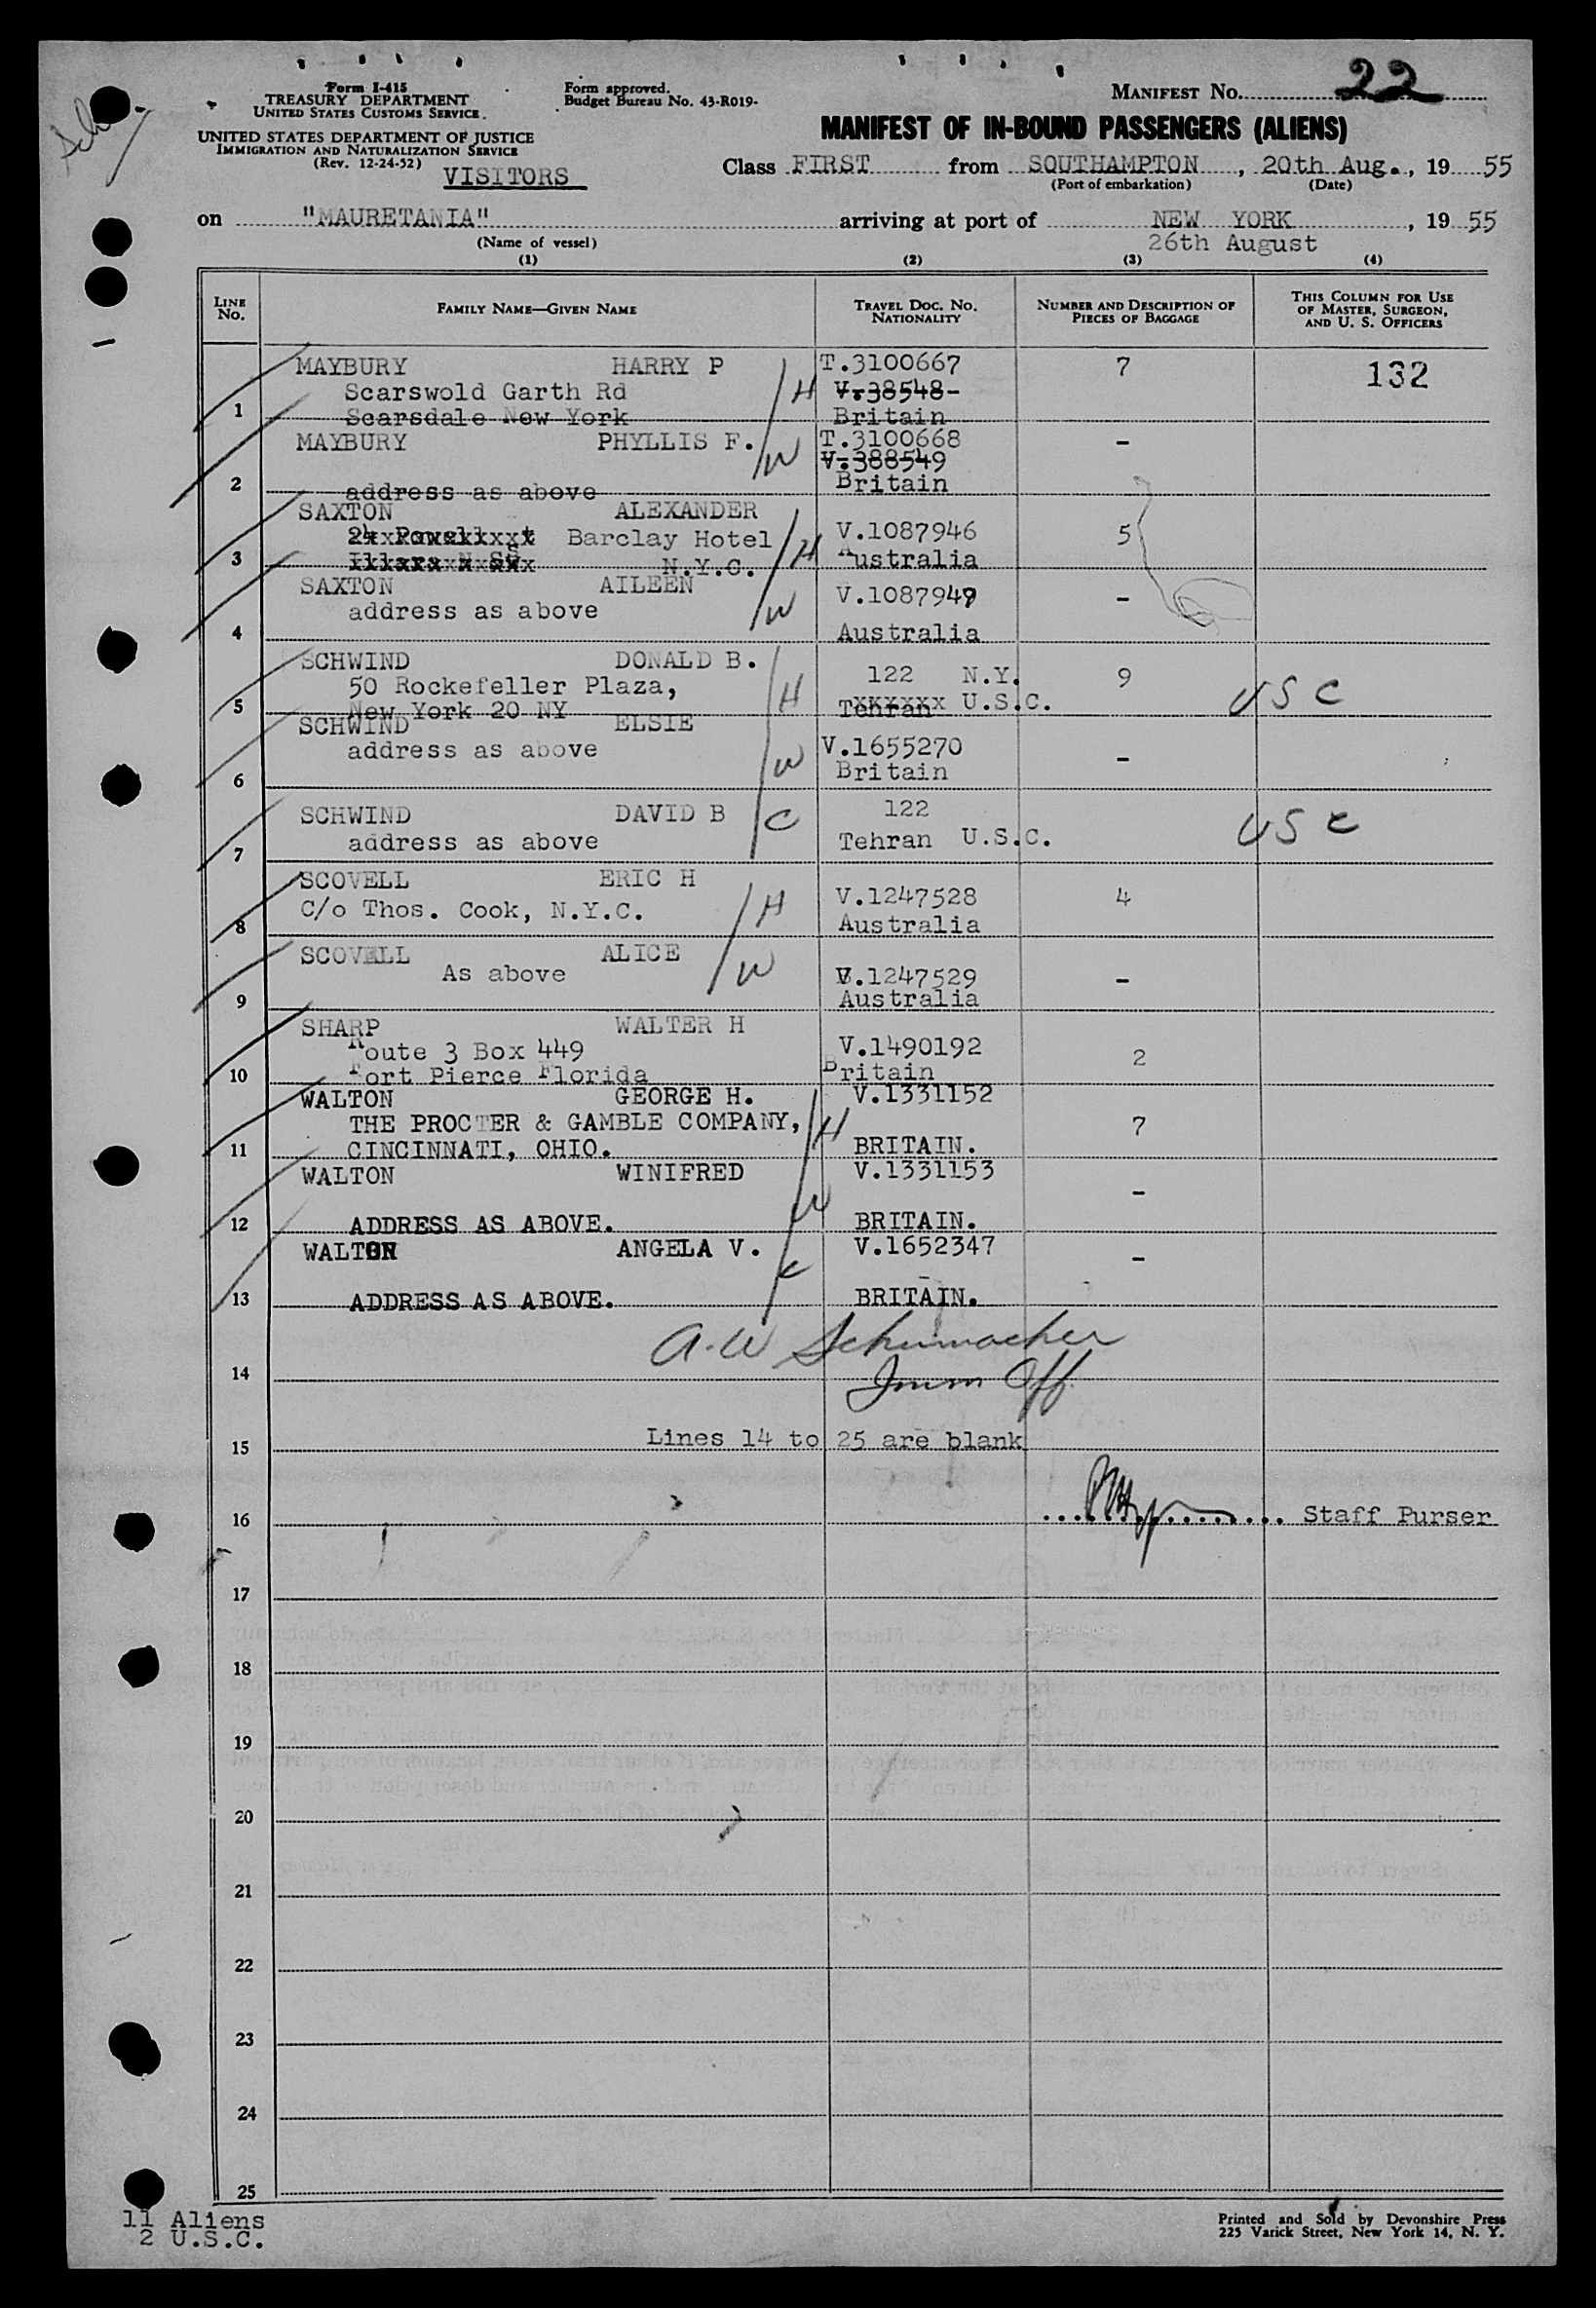 Form I-415
TREASURY DEPARTMENT
UNITED STATES CUSTOMS SERVICE
UNITED STATES DEPARTMENT OF JUSTICE
IMMIGRATION AND NATURALIZATION SERVICE
(Rev. 12-24-52)
VISITORS
Form approved.
Budget Bureau No. 43-R019-
MANIFEST No. 22
MANIFEST OF IN-BOUND PASSENGERS (ALIENS)
Class FIRST from SOUTHAMPTON, 20th Aug., 19 55
(Port of embarkation) (Date)
on "MAURETANIA" arriving at port of NEW YORK, 19 55
(Name of vessel) 26th August
(1) (2) (3) (4)
LINE No. FAMILY NAME—GIVEN NAME TRAVEL DOC. No. NATIONALITY NUMBER AND DESCRIPTION OF PIECES OF BAGGAGE THIS COLUMN FOR USE OF MASTER, SURGEON, AND U. S. OFFICERS
MAYBURY HARRY P T.3100667 7 132
Scarswold Garth Rd H V.38548-
1 Scarsdale New York Britain
MAYBURY PHYLLIS F. W T.3100668 -
V.388549
2 address as above Britain
SAXTON ALEXANDER
Barclay Hotel H V.1087946 5
3 N.Y.C. Australia
SAXTON AILEEN V.1087949 -
address as above W
4 Australia
SCHWIND DONALD B. 122 N.Y. 9
50 Rockefeller Plaza, H Tehran U.S.C. USC
5 New York 20 NY
SCHWIND ELSIE
address as above W V.1655270 -
6 Britain
SCHWIND DAVID B C 122 USC
7 address as above Tehran U.S.C.
SCOVELL ERIC H V.1247528 4
8 C/o Thos. Cook, N.Y.C. H Australia
SCOVELL ALICE
As above W V.1247529 -
9 Australia
SHARP WALTER H
Route 3 Box 449 V.1490192 2
10 Fort Pierce Florida Britain
WALTON GEORGE H. V.1331152
THE PROCTER & GAMBLE COMPANY, H 7
11 CINCINNATI, OHIO. BRITAIN.
WALTON WINIFRED V.1331153
W -
12 ADDRESS AS ABOVE. BRITAIN.
WALTON ANGELA V. V.1652347
C -
13 ADDRESS AS ABOVE. BRITAIN.
A.W Schumacher
14 Imm Off.
15 Lines 14 to 25 are blank
16 Staff Purser
17
18
19
20
21
22
23
24
25
11 Aliens
2 U.S.C.
Printed and Sold by Devonshire Press
225 Varick Street, New York 14, N. Y.